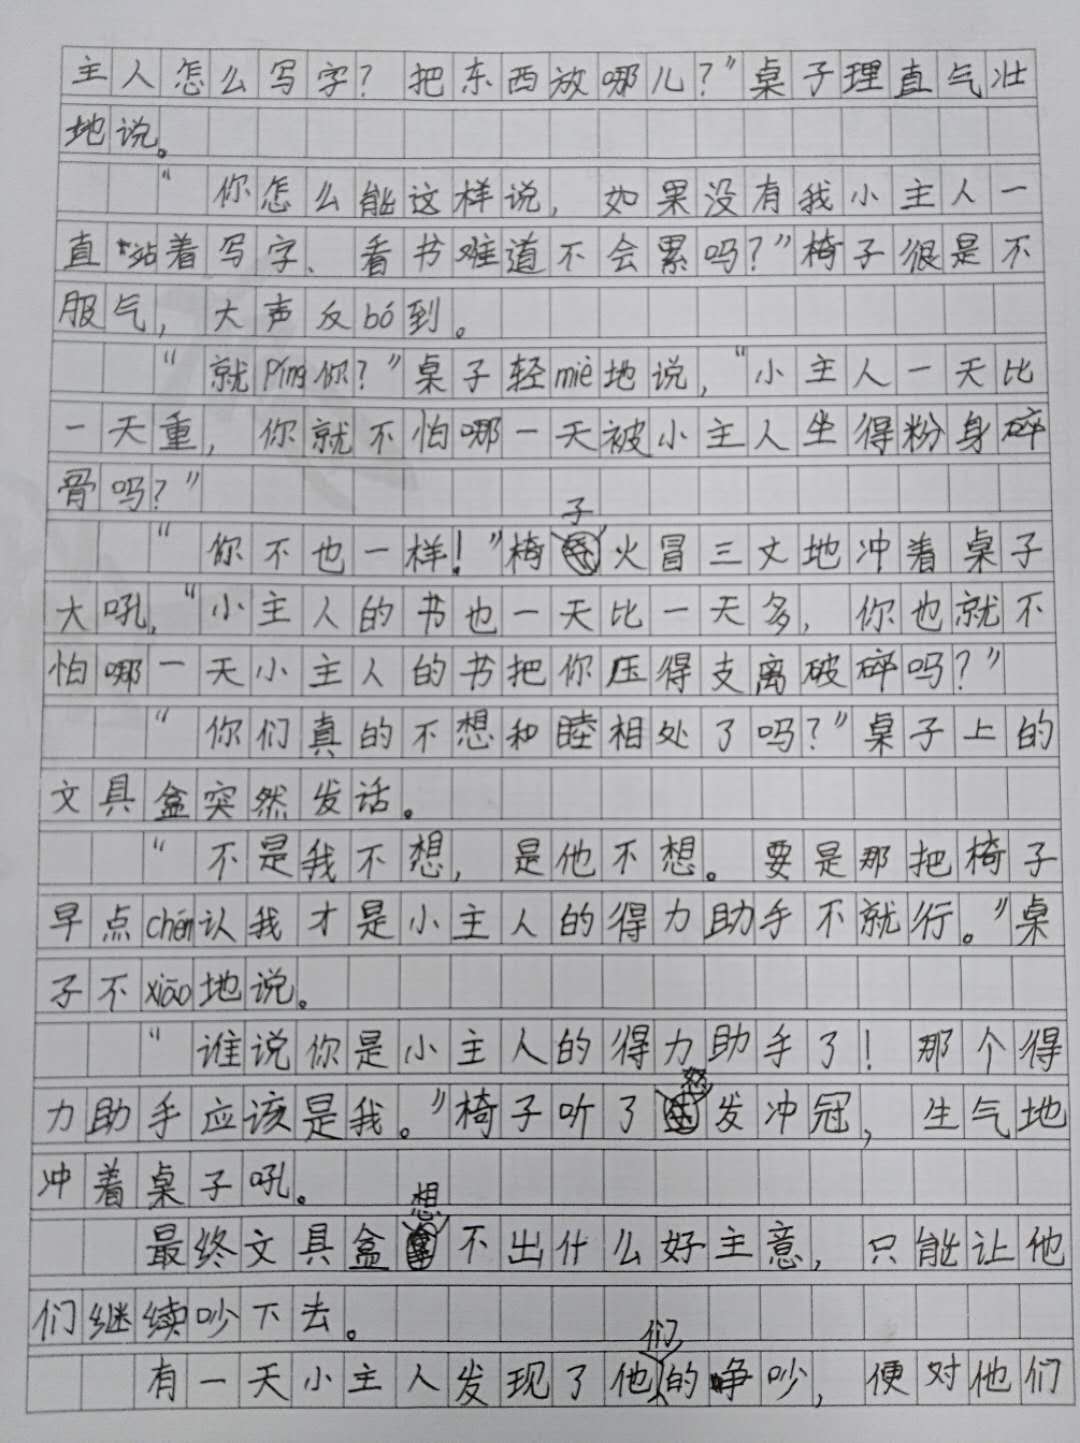 主人怎么写字？把东西放哪儿？”桌子理直气壮
地说。
“你怎么能这样说，如果没有我小主人一
直站着写字、看书难道不会累吗？”椅子很是不
服气，大声反bó到。
“就píng你？”桌子轻miè地说，“小主人一天比
一天重，你就不怕哪一天被小主人坐得粉身碎
骨吗？”
“你不也一样！”椅子火冒三丈地冲着桌子
大吼，“小主人的书也一天比一天多，你也就不
怕哪一天小主人的书把你压得支离破碎吗？”
“你们真的不想和睦相处了吗？”桌子上的
文具盒突然发话。
“不是我不想，是他不想。要是那把椅子
早点chén认我才是小主人的得力助手不就行。”桌
子不xiāo地说。
“谁说你是小主人的得力助手了！那个得
力助手应该是我。”椅子听了怒发冲冠，生气地
冲着桌子吼。
最终文具盒想不出什么好主意，只能让他
们继续吵下去。
有一天小主人发现了他们的争吵，便对他们